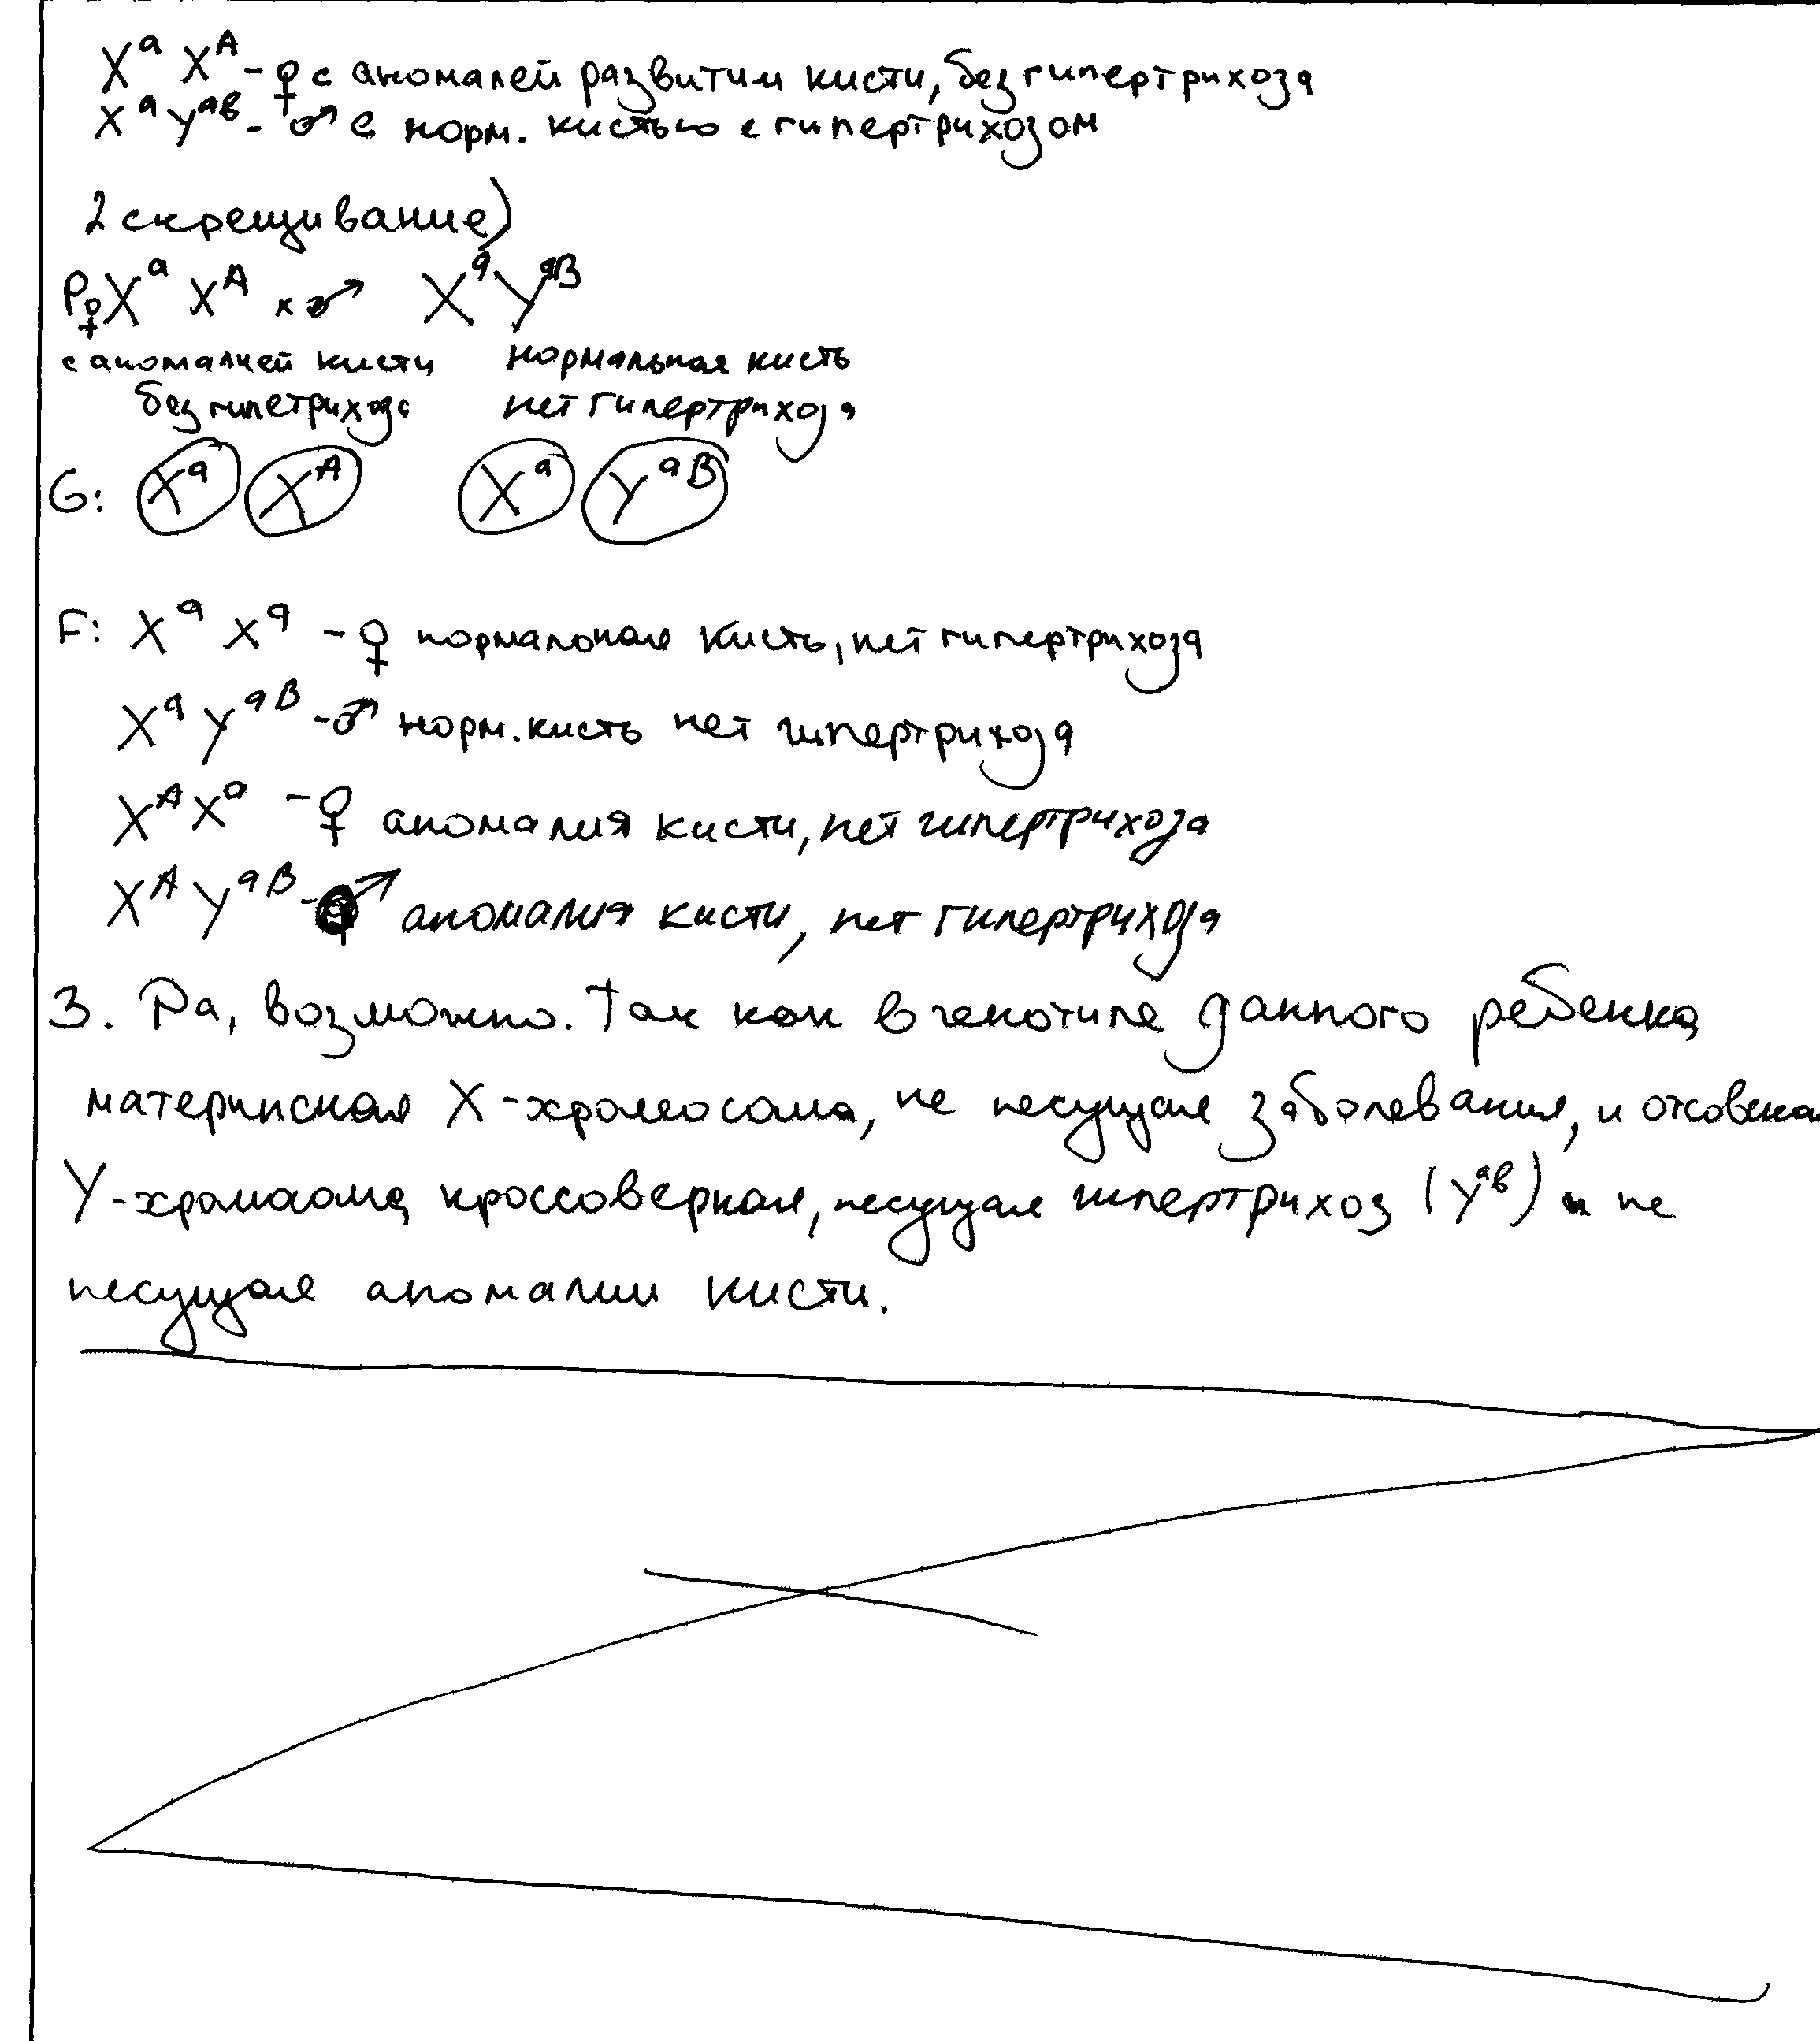 Xᵃ Xᴬ - ♀ с аномалей развитим кисти, без гипертрихоза
Xᵃ Yᵃᵇ - ♂ с норм. кистью с гипертрихозом
2 скрещивание)
P ♀ Xᵃ Xᴬ x ♂ Xᵃ Yᵃᴮ
с аномалией кисти нормальная кисть
без гипетрихоза нет гипертрихоза
G: Xᵃ Xᴬ Xᵃ Yᵃᴮ
F: Xᵃ Xᵃ - ♀ нормальная кисть, нет гипертрихоза
Xᵃ Yᵃᴮ - ♂ норм. кисть нет гипертрихоза
Xᴬ Xᵃ - ♀ аномалия кисти, нет гипертрихоза
Xᴬ Yᵃᴮ - ♂ аномалия кисти, нет гипертрихоза
3. Да, возможно. Так как в генотипе данного ребенка
материнская X-хромосома, не несущая заболевания, и
Y-хромосома кроссоверная, несущая гипертрихоз (Yᵃᵇ) и не
несущая аномалии кисти.